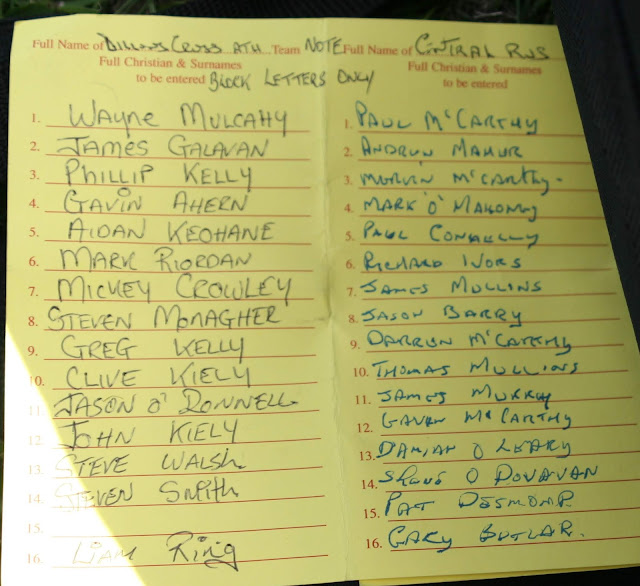 Full Name of DILLONS CROSS ATH Team NOTE
Full Christian & Surnames
to be entered BLOCK LETTERS ONLY
1. WAYNE MULCAHY
2. JAMES GALAVAN
3. PHILLIP KELLY
4. GAVIN AHERN
5. AIDAN KEOHANE
6. MARK RIORDAN
7. MICKEY CROWLEY
8. STEVEN MONAGHER
9. GREG KELLY
10. CLIVE KIELY
11. JASON O'DONNELL
12. JOHN KIELY
13. STEVE WALSH
14. STEVEN SMITH
15.
16. LIAM RING
Full Name of CENTRAL RVS
Full Christian & Surnames
to be entered
1. PAUL McCARTHY
2. ANDREW MAHER
3. MERVIN McCARTHY.
4. MARK O'MAHONEY
5. PAUL CONNELLY
6. RICHARD IVORS
7. JAMES MULLINS
8. JASON BARRY
9. DARREN McCARTHY
10. THOMAS MULLINS
11. JAMES MURRAY
12. GAVEN McCARTHY
13. DAMIAN O LEARY
14. SHANE O DONAVAN
15. PAT DESMOND.
16. GARY BUTLAR.